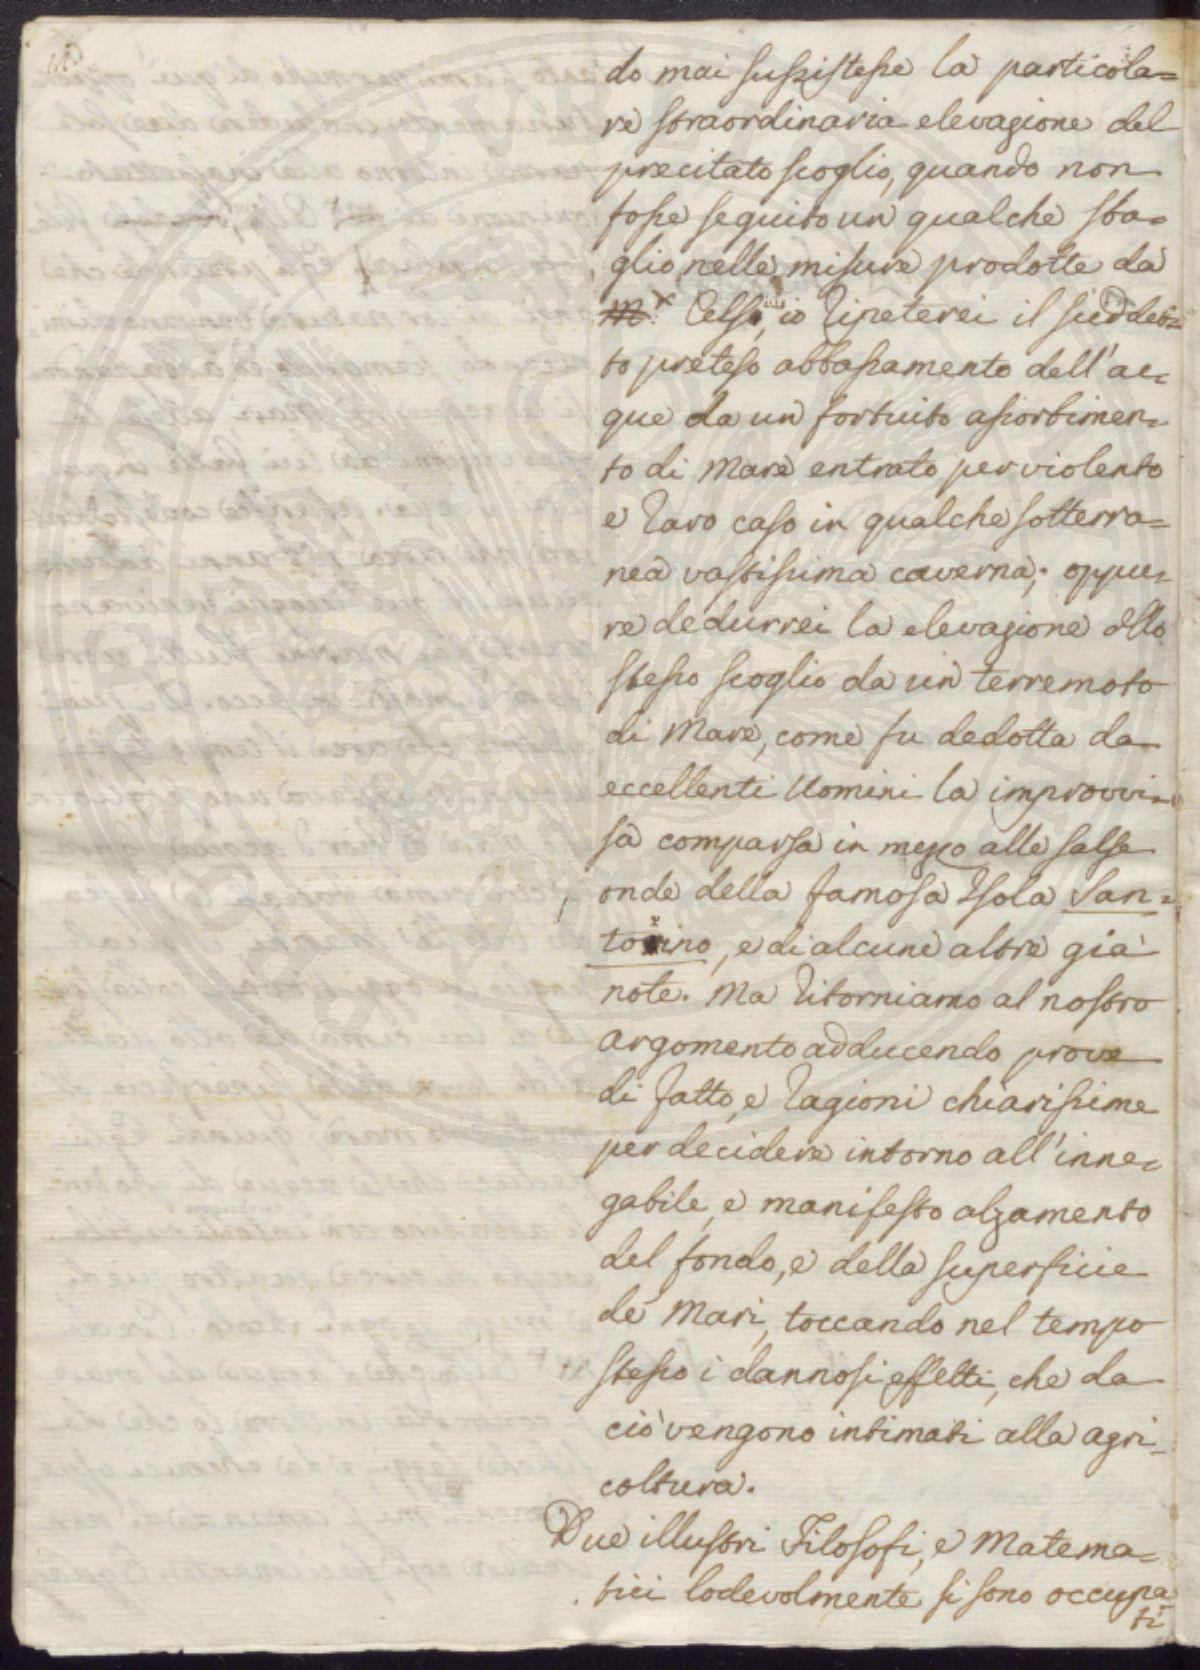 do mai sussistesse la particola=
re straordinaria elevazione del
precitato scoglio, quando non
fosse seguito un qualche sba=
glio nelle misure prodotte da
M.r Celsio, io ripeterei il suddet=
to preteso abbassamento dell'ac=
que da un fortuito assorbimen=
to di Mare entrato per violento
e raro caso in qualche sotterra=
nea vastissima caverna; oppu=
re dedurrei la elevazione dello
stesso scoglio da un terremoto
di Mare, come fu dedotta da
eccellenti Uomini la improvvi=
sa comparsa in mezzo alle salse
onde della famosa Isola San=
torino, e di alcune altre già
note. Ma ritorniamo al nostro
argomento adducendo prove
di fatto, e ragioni chiarissime
per decidere intorno all'inne=
gabile, e manifesto alzamento
del fondo, e della superficie
de' Mari, toccando nel tempo
stesso i dannosi effetti, che da
ciò vengono intimati alla agri=
coltura.
Due illustri Filosofi, e Matema=
tici lodevolmente si sono occupa=
ti